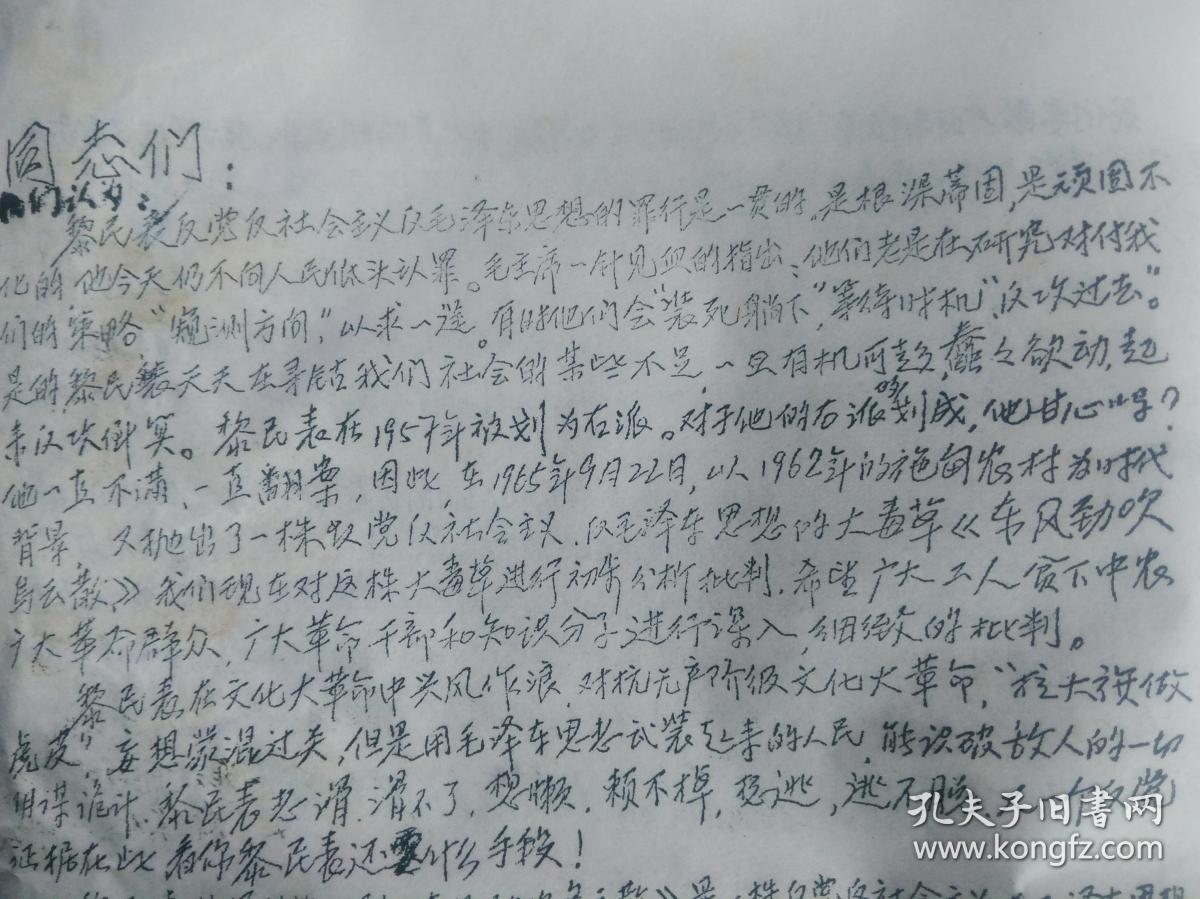 同志们：
我们认为：
黎民表反党反社会主义反毛泽东思想的罪行是一贯的，是根深蒂固，是顽固不
化的，他今天仍不向人民低头认罪。毛主席一针见血的指出：他们老是在研究对付我
们的策略“窥测方向”，以求一逞。有时他们会“装死躺下”，“等待时机”，“反攻过去”。
是的，黎民表天天在寻找我们社会的某些不足，一旦有机可乘，蠢々欲动，起
来反攻倒算。黎民表在1957年被划为右派。对于他的右派划成，他甘心吗？
他一直不满，一直翻案，因此，在1965年9月22日，以1962年的施甸农村为时代
背景，又抛出了一株反党反社会主义，反毛泽东思想的大毒草《东风劲吹
乌云散》我们现在对这株大毒草进行初步分析批判，希望广大工人贫下中农
广大革命群众，广大革命干部和知识分子进行深入，细致的批判。
黎民表在文化大革命中兴风作浪，对抗无产阶级文化大革命，“拉大旗做
虎皮”，妄想蒙混过关，但是用毛泽东思想武装起来的人民，能识破敌人的一切
阴谋诡计，黎民表想滑，滑不了，想懒，赖不掉，想逃，逃不脱，反党
证据在此看你黎民表还耍什么手段！
散》是一株反党反社会主义
孔夫子旧书网
www.kongfz.com